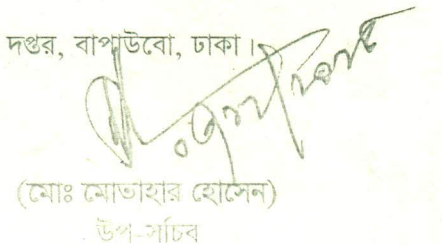 দপ্তর, বাপাউবো, ঢাকা।
(মোঃ মোতাহার হোসেন)
উপ-সচিব